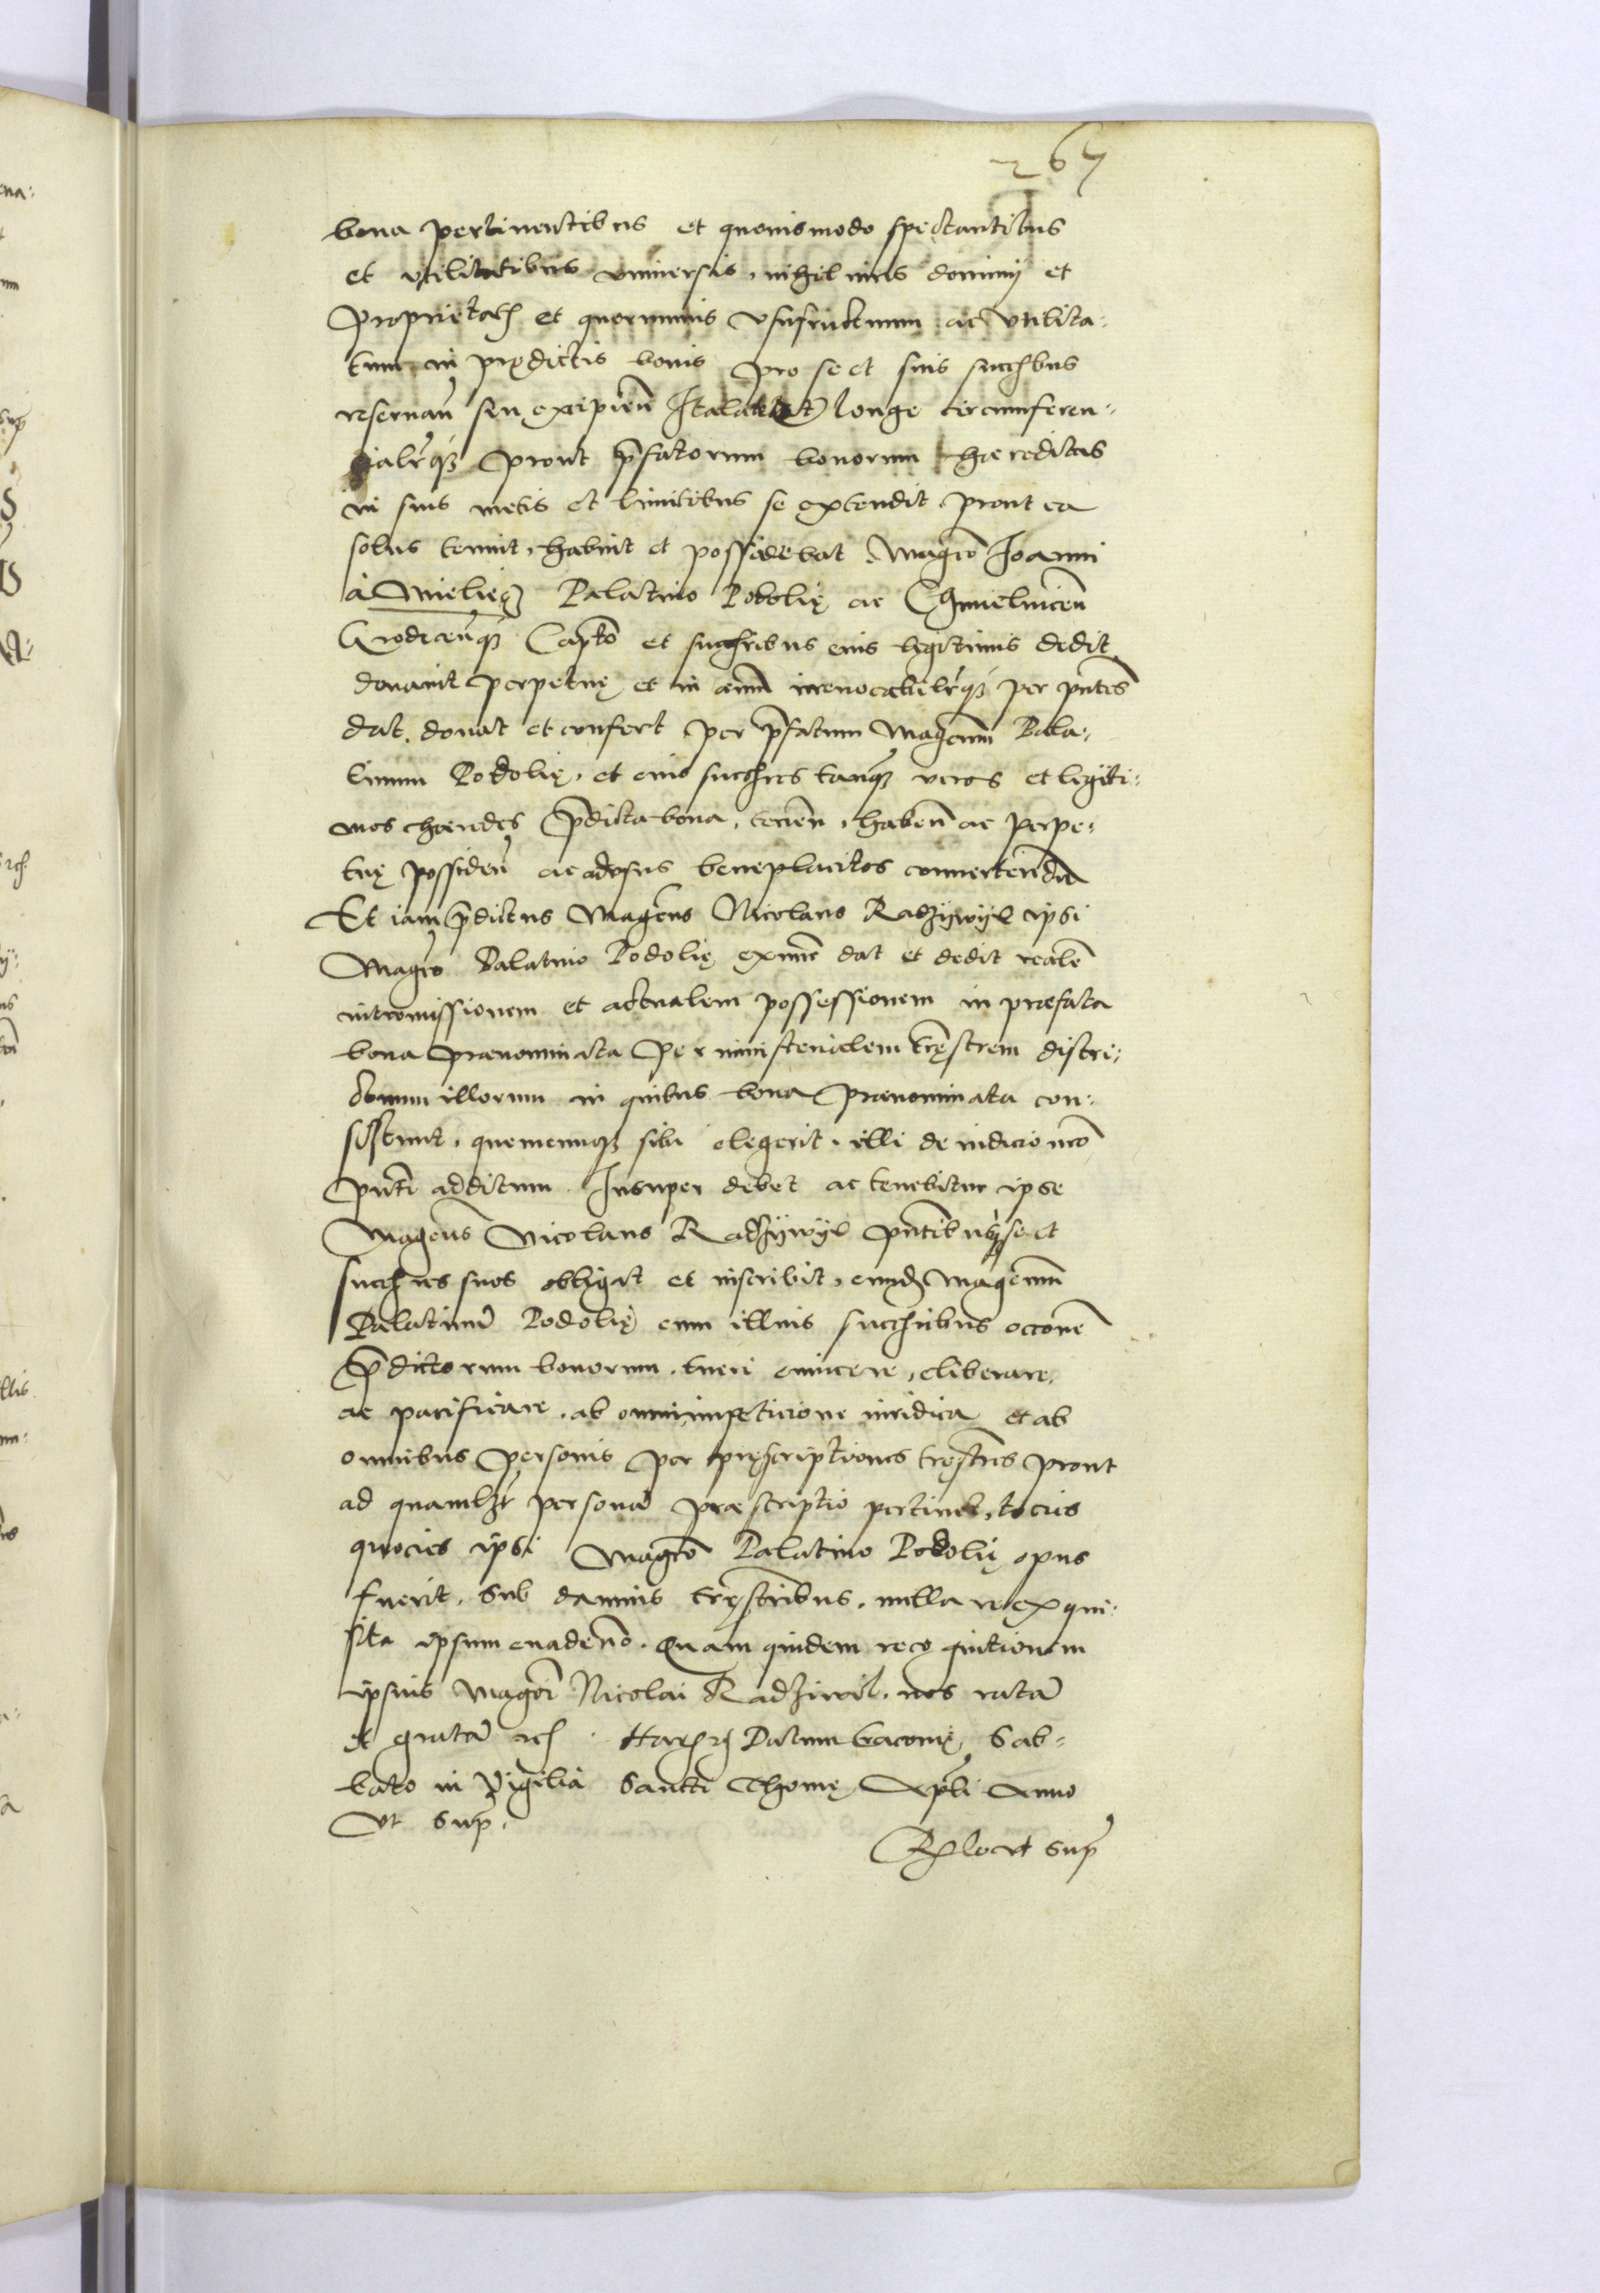 267
bona pertinentibus et quouismodo spectantibus
et vtilitatibus vniuersis, nihil iuris dominij et
proprietatis et quorumuis vsufructuum ac vtilita-
tum in prędictis bonis pro se et suis succribus
reseruan̄ seu excipien̄ Ita late et longe circumferen-
cialrq3 prout p̄fatorum bonorum haereditas
in suis metis et limitibus se extendit, prout ea
solus tenuit, habuit et possidebat. Magco Joanni
à Mieliecz Palatino Podolię ac Chmielnicen̄
Grodecen̄q3 Capto et succribus eius legitimis dedit
donauit perpetuę et in aeuum irreuocabilrq3 per pn̄tes
dat, donat et confert per p̄fatum Magcum Pala-
tinum Podolię, et eius succres tanq3 veros et legiti-
mos haeredes p̄dicta bona, tenen̄, haben̄ ac perpe-
tuę possiden̄ ac ad vsus beneplacitos conuertenda
Et iam p̄dictus Magcus Nicolaus Radzywyl ipsi
Magco Palatino Podolię exnunc dat et dedit realem̄
intromissionem et actualem possessionem in praefata
bona praenominata per ministerialem tręstrem distri-
ctuum illorum in quibus bona praenominata con-
sistunt, quemcunq3 sibi elegerit, illi de iudicio nro
pn̄ti additum. Insuper debet ac tenebitur ipse
Magcus Nicolaus Radzywyl pn̄tibusq3 se et
succres suos obligat et inscribit, eund Magcum
Palatinum̄ Podolię cum illius succribus occone
p̄dictorum bonorum, tueri euincere, eliberare,
ac pacificare, ab omni impeticione iuridica et ab
omnibus personis per pręscriptiones tręstres prout
ad quamlzt personam̄ praescriptio pertinet, tocies
quocies ipsi Magco Palatino Podolię opus
fuerit, sub damnis tręstribus, nulla re exqui-
sita ipsum euadendo. Quam quidem recognitionem
ipsius Magci Nicolai Radziwil, nos ratam̄
et gratam̄ etc. Harum etc Datum Cracouię Sab-
bato in Vigilia Sancti Thomę Apli Anno
Vt sup.
Rlo vt sup